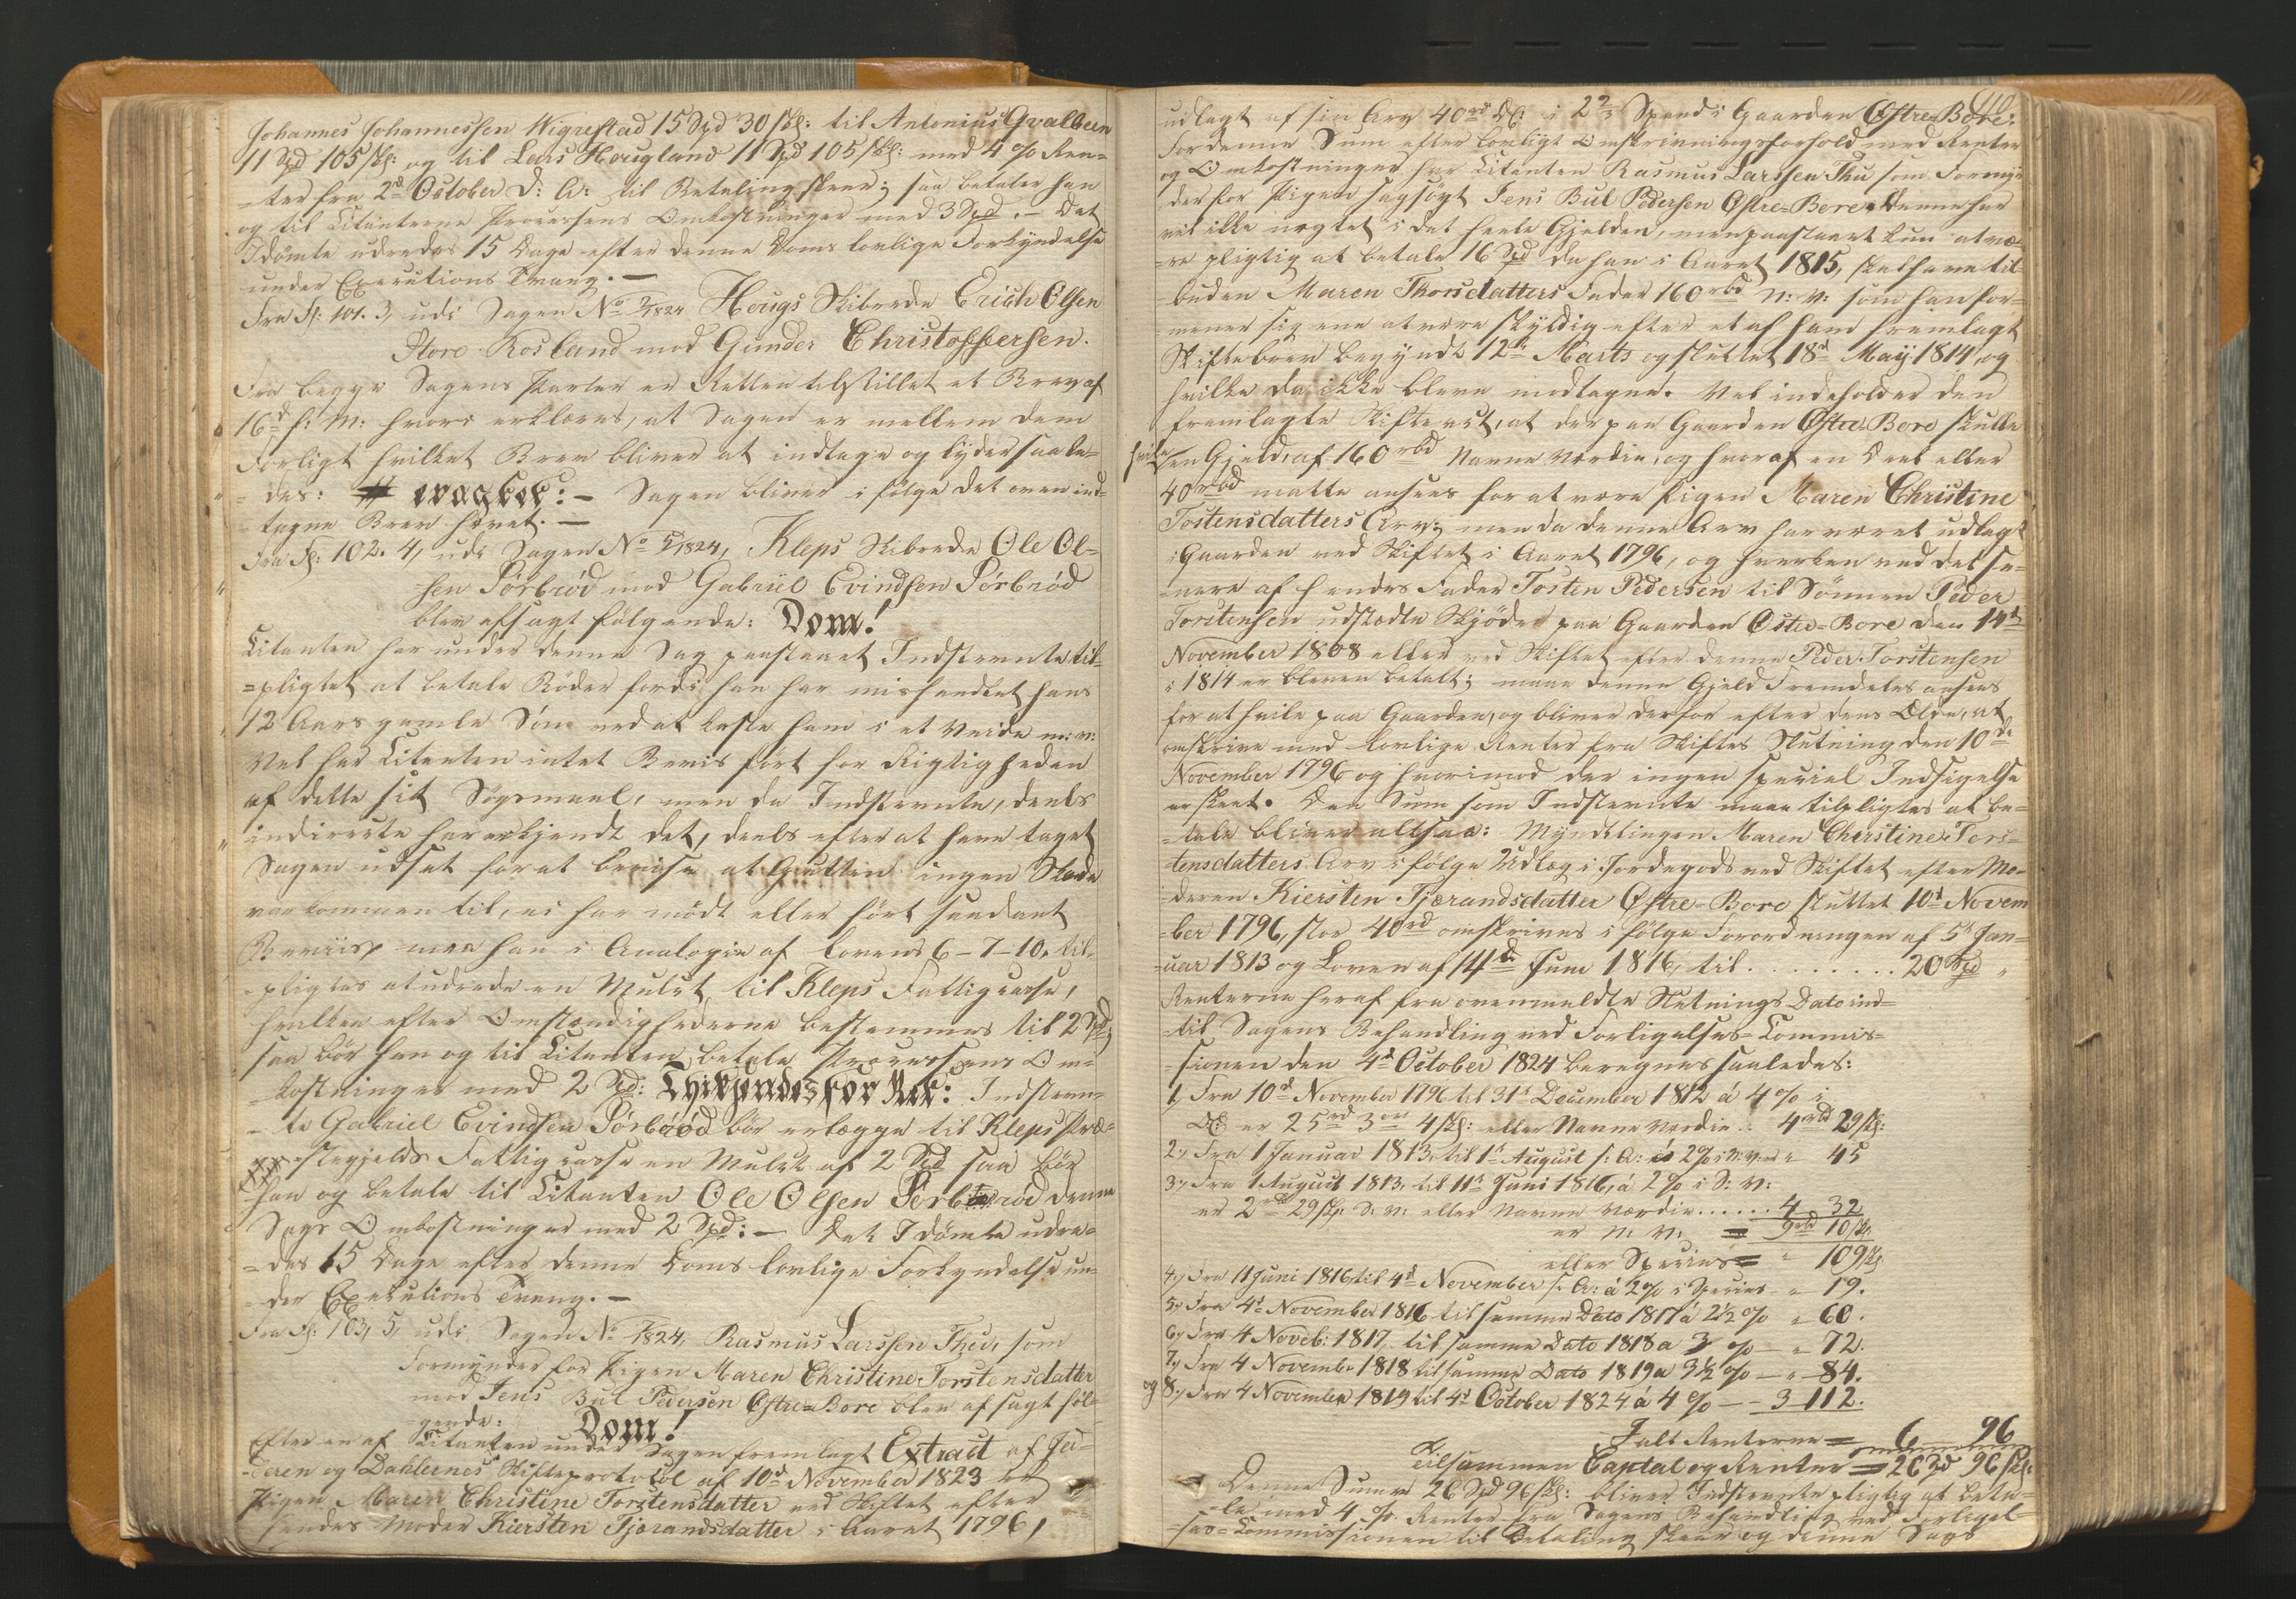 Johannes Johannessen Wigrestad 15 Spd 30 skl: til Antonius Qvalbein
11 Spd 105 skl: og til Lars Hougland 11 Spd 105 skl: med 4 % Ren-
-ter fra 2d October d: A: til Betaling skeer; saa betaler han
og til Citanterne Processens Omkostninger med 3 Spd. - Det
Idømte udredes 15 Dage efter denne Doms lovlige Forkyndelse
under Executions Tvang. -
Fra Fol: 101. 3, udi Sagen No /1824 Hougs Skibrede Erich Olsen
Store Rosland mod Gunder Christoffersen.
Fra begge Sagens Parter er Retten tilstillet et Brev af
16d f: M: hvori erklæres, at Sagen er mellem dem
Forligt hvilket Brev bliver at indtage og lyder saale-
des: - Sagen bliver i følge det oven ind-
tagne Brev hævet. -
Fra Fol: 102. 4, udi Sagen No 5/1824, Kleps Skibrede Ole Ol-
sen Pörbröd mod Gabriel Evindsen Pörbröd
blev afsagt følgende: Dom!
Citanten har under denne Sag paastaaet Indstevnte til-
=pligtet at betale Bøder fordi han har mishandlet hans
12 Aars gamle Søn ved at kaste ham i et Veide m: v:
Vel har Citanten intet Beviis ført for Rigtigheden
af dette sit Søgsmaal, men da Indstevnte, deels
indirecte har erkjendt det, deels efter at have taget
Sagen udsat for at bevise at Gutten ingen Skade
var kommen til, ei har mødt eller ført saadant
Beviis maa han i Analogie af Lovens 6-7-10, til-
pligtes at udrede en Mulct til Kleps Fattigcasse,
hvilken efter Omstændighederne bestemmes til 2 Spd,
saa bør han og til Citanten betale Processens Om-
kostninger med 2 Spd: Thi kjendes for Ret: Indstevn-
-te Gabriel Evindsen Pörbröd bør erlægge til Kleps Præ-
-stegjelds Fattigcasse en Mulct af 2 Spd saa bør
han og betale til Citanten Ole Olsen Pörbröd denne
Sags Omkostninger med 2 Spd: - Det Idømte udre-
=des 15 Dage efter denne Doms lovlige Forkyndelse un-
der Executions Tvang. -
Fra Fol: 103, 5, udi Sagen No /1824, Rasmus Larssen Thu, som
Formynder for Pigen Maren Christine Torstensdatter
mod Jens Bul Pedersen Østre=Bore blev afsagt føl-
gende: Dom!
Efter en af Citanten under Sagen fremlagt Extract af Jæ-
-deren og Dahlernes Skifteprotokol af 10d November 1823 er
Pigen Maren Christine Torstensdatter ved Skiftet efter
hendes Moder Kiersten Tjærandsdatter i Aaret 1796,
110
udlagt af sin Arv 40rd DC: i 2 2/3 Spand i Gaarden Østre=Bore.
For denne Sum efter lovligt Omskrivningsforhold med Renter
og Omkostninger har Citanten Rasmus Larssen Thu som Formyn-
der for Pigen sagsøgt Jens Bul Pedersen Østre=Bore. Denne har
vel ikke nægtet i det heele Gjelden, men paastaaet kun at væ-
-re pligtig at betale 16 Spd da han i Aaret 1815, skal have til-
buden Maren Thorsdatters Fader 160 rbd N: V: som han for-
mener sig ene at være skyldig efter et af ham fremlagt
Skiftebrev begyndt 12te Marts og sluttet 18d May 1814, og
hvilke da ikke bleve modtagne. Vel indeholder den
fremlagte Skifteact, at der paa Gaarden Østre Bore skulde
hvile en Gjeld af 160 rbd Navne Værdie, og hvoraf en Deel eller
40 rbd maatte ansees for at være Pigen Maren Christine
Tostensdatters Arv; men da denne Arv har været udlagt
i Gaarden ved Skiftet i Aaret 1796, og hverken ved det se-
nere af hendes Fader Tosten Pedersen til Sønnen Peder
Torstensen udstædte Skjøde paa Gaarden Østre=Bore den 14d
November 1808 eller ved Skiftet efter denne Peder Torstensen
i 1814 er bleven betalt; maae denne Gjeld Fremdeles ansees
for at hvile paa Gaarden, og bliver derfor efter dens Ælde, at
omskrive med lovlige Renter fra Skiftes Slutning den 10de
November 1796 og hvorimod der ingen speciel Indsigelse
er skeet. Den Sum som Indstevnte maae tilpligtes at be-
-tale bliver altsaa: Myndtlingen Maren Christine Tors-
-tensdatters Arv i følge Udlæg i Jordegods ved Skiftet efter Mo-
-deren Kiersten Tjærandsdatter Østre=Bore sluttet 10d Novem
-ber 1796, stor 40 rd omskrives i følge Forordningen af 5t Jan-
-uar 1813 og Loven af 14de Juni 1816, til . . . . . . . . . 20 Spd "
Renterne heraf fra ovenmeldte Slutnings Dato ind-
-til Sagens Behandling ved Forligelses=Commis-
=sionen den 4d October 1824 beregnes saaledes:
1, Fra 10d November 1796 til 31t December 1812 á 4 % i
DC er 25 rd 3 ort 4 skl: eller Navne Værdie . . 4 rbd 29 skl:
2, Fra 1 Januar 1813, til 1t August s: A: á 2 % i N: V: " 45
3, Fra 1 August 1813, til 11t Juni 1816, á 2 % i S: V:
er 2 rbd 29 skl: S: V: eller Navne Værdie . . . . . . 4 32
er N: V: = 9 rbd 10 skl.
eller Species = " 109 skl
4, Fra 11 Juni 1816 til 4d November s: A: á 2 % i Species - " 19.
5, Fra 4d November 1816 til samme Dato 1817 á 2 1/2 % " 60.
6, Fra 4 Noveb: 1817, til samme Dato 1818 a 3 % - " 72.
7, Fra 4 Novembr 1818 til samme Dato 1819 a 3 1/2 % - " 84.
og 8, Fra 4 November 1819 til 4d October 1824 á 4 % - - 3 112.
I alt Renterne = 6 96
Tilsammen Captal og Renter = 26 Spd 96 skl:
Denne Summa 26 Spd 96 skl: bliver Indstevnte pligtig at beta-
-le med 4 % Renter fra Sagens Behandling ved Forligel-
-ses=Commissionen til Betaling skeer og denne Sags